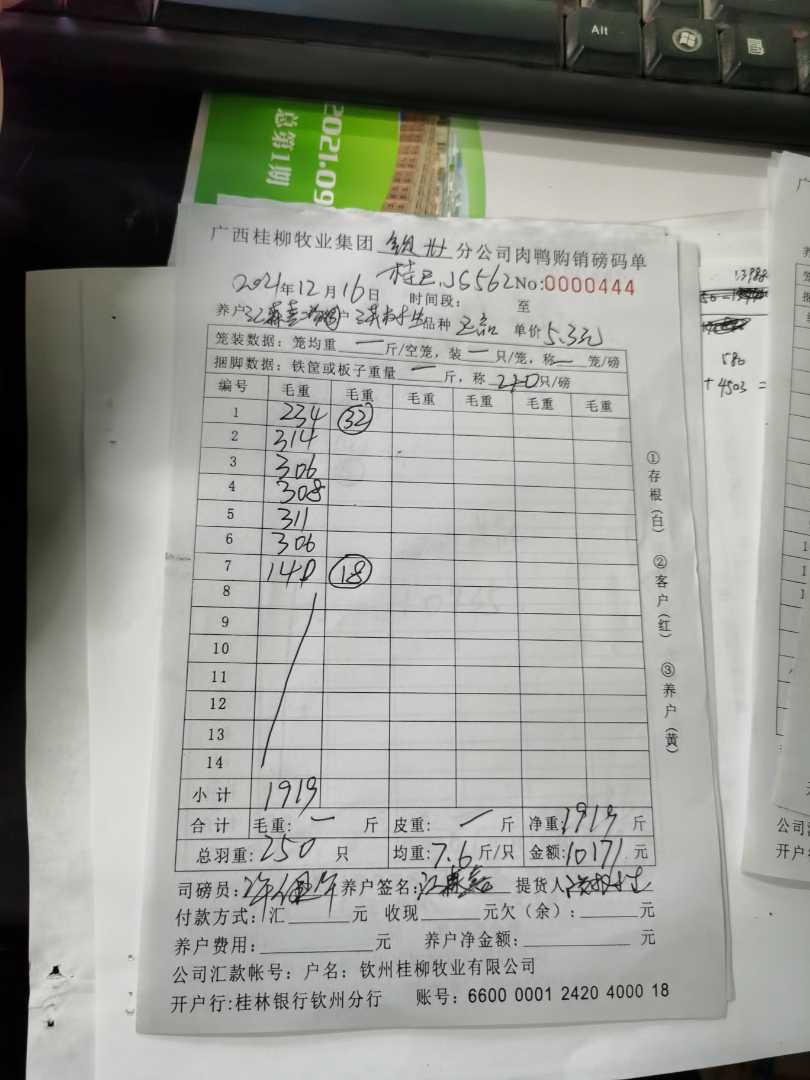 Alt
2021.09
总第1期
广西桂柳牧业集团 钦州 分公司肉鸭购销磅码单
2021年12月16日 桂E.JS562 No:0000444
时间段: 至
养户 品种 单价5.3元
笼装数据: 笼均重 一 斤/空笼, 装 一 只/笼, 称 一 笼/磅
捆脚数据: 铁筐或板子重量 一 斤, 称 只/磅
编号 毛重 毛重 毛重 毛重 毛重 毛重
1 234 32
2 314
3 306
4 308
5 311
6 306
7 140 18
8
9
10
11
12
13
14
小计 1919
合计 毛重: 一 斤 皮重: 一 斤 净重: 1919 斤
总羽重: 250 只 均重: 7.6 斤/只 金额: 10171 元
司磅员: 养户签名: 提货人
付款方式: 汇 元 收现 元欠(余): 元
养户费用: 元 养户净金额: 元
公司汇款帐号: 户名: 钦州桂柳牧业有限公司
开户行:桂林银行钦州分行 账号: 6600 0001 2420 4000 18
①存根(白) ②客户(红) ③养户(黄)
580
+ 4503 =
公司汇
开户行